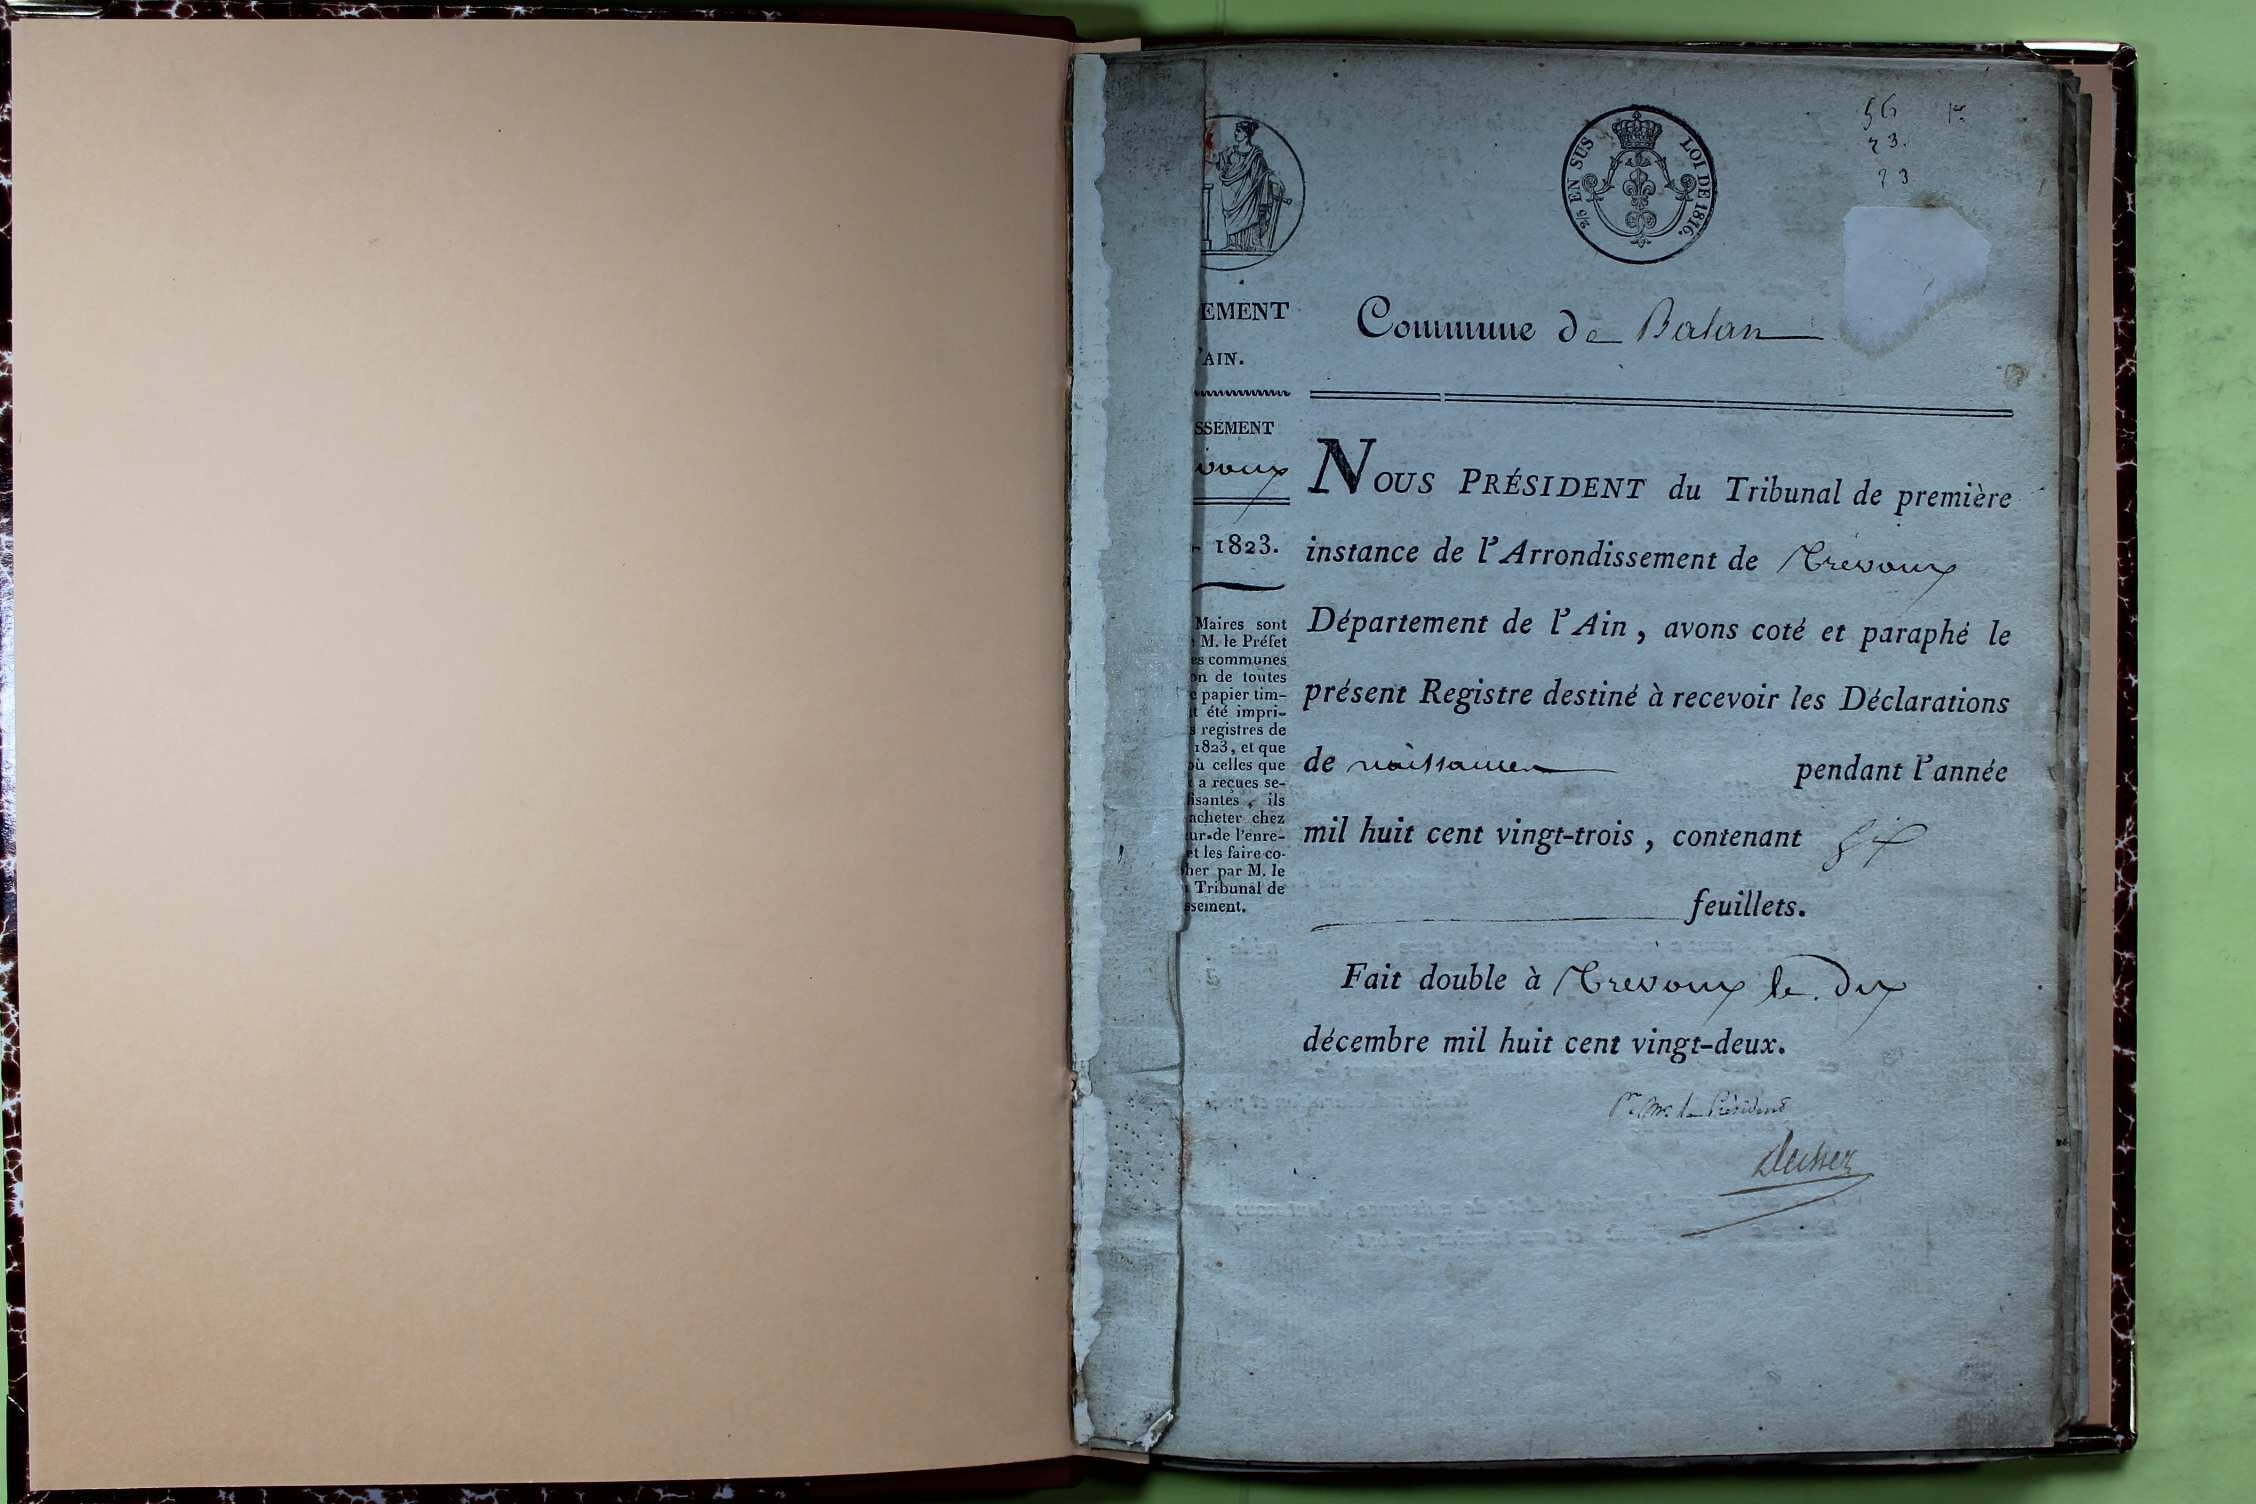 56 1er
23.
23
2/5 EN SUS LOI DE 1816.
EMENT
AIN.
SSEMENT
évoux
1823.
Maires sont
M. le Préfet
es communes
on de toutes
e papier tim-
t été impri-
s registres de
1823, et que
où celles que
a reçues se-
fisantes, ils
acheter chez
ur de l'enre-
et les faire co-
her par M. le
Tribunal de
ssement.
Commune de Balan
NOUS PRÉSIDENT du Tribunal de première
instance de l'Arrondissement de Trévoux
Département de l'Ain, avons coté et paraphé le
présent Registre destiné à recevoir les Déclarations
de naissances pendant l'année
mil huit cent vingt-trois, contenant six
feuillets.
Fait double à Trevoux le dix
décembre mil huit cent vingt-deux.
Pr. Mr. le Président